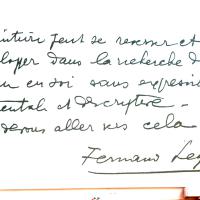 peut se resserrer et
loper dans la recherche d
en soi sans expressi
mentale et descriptive.
devons aller vers cela
Fernand Leg